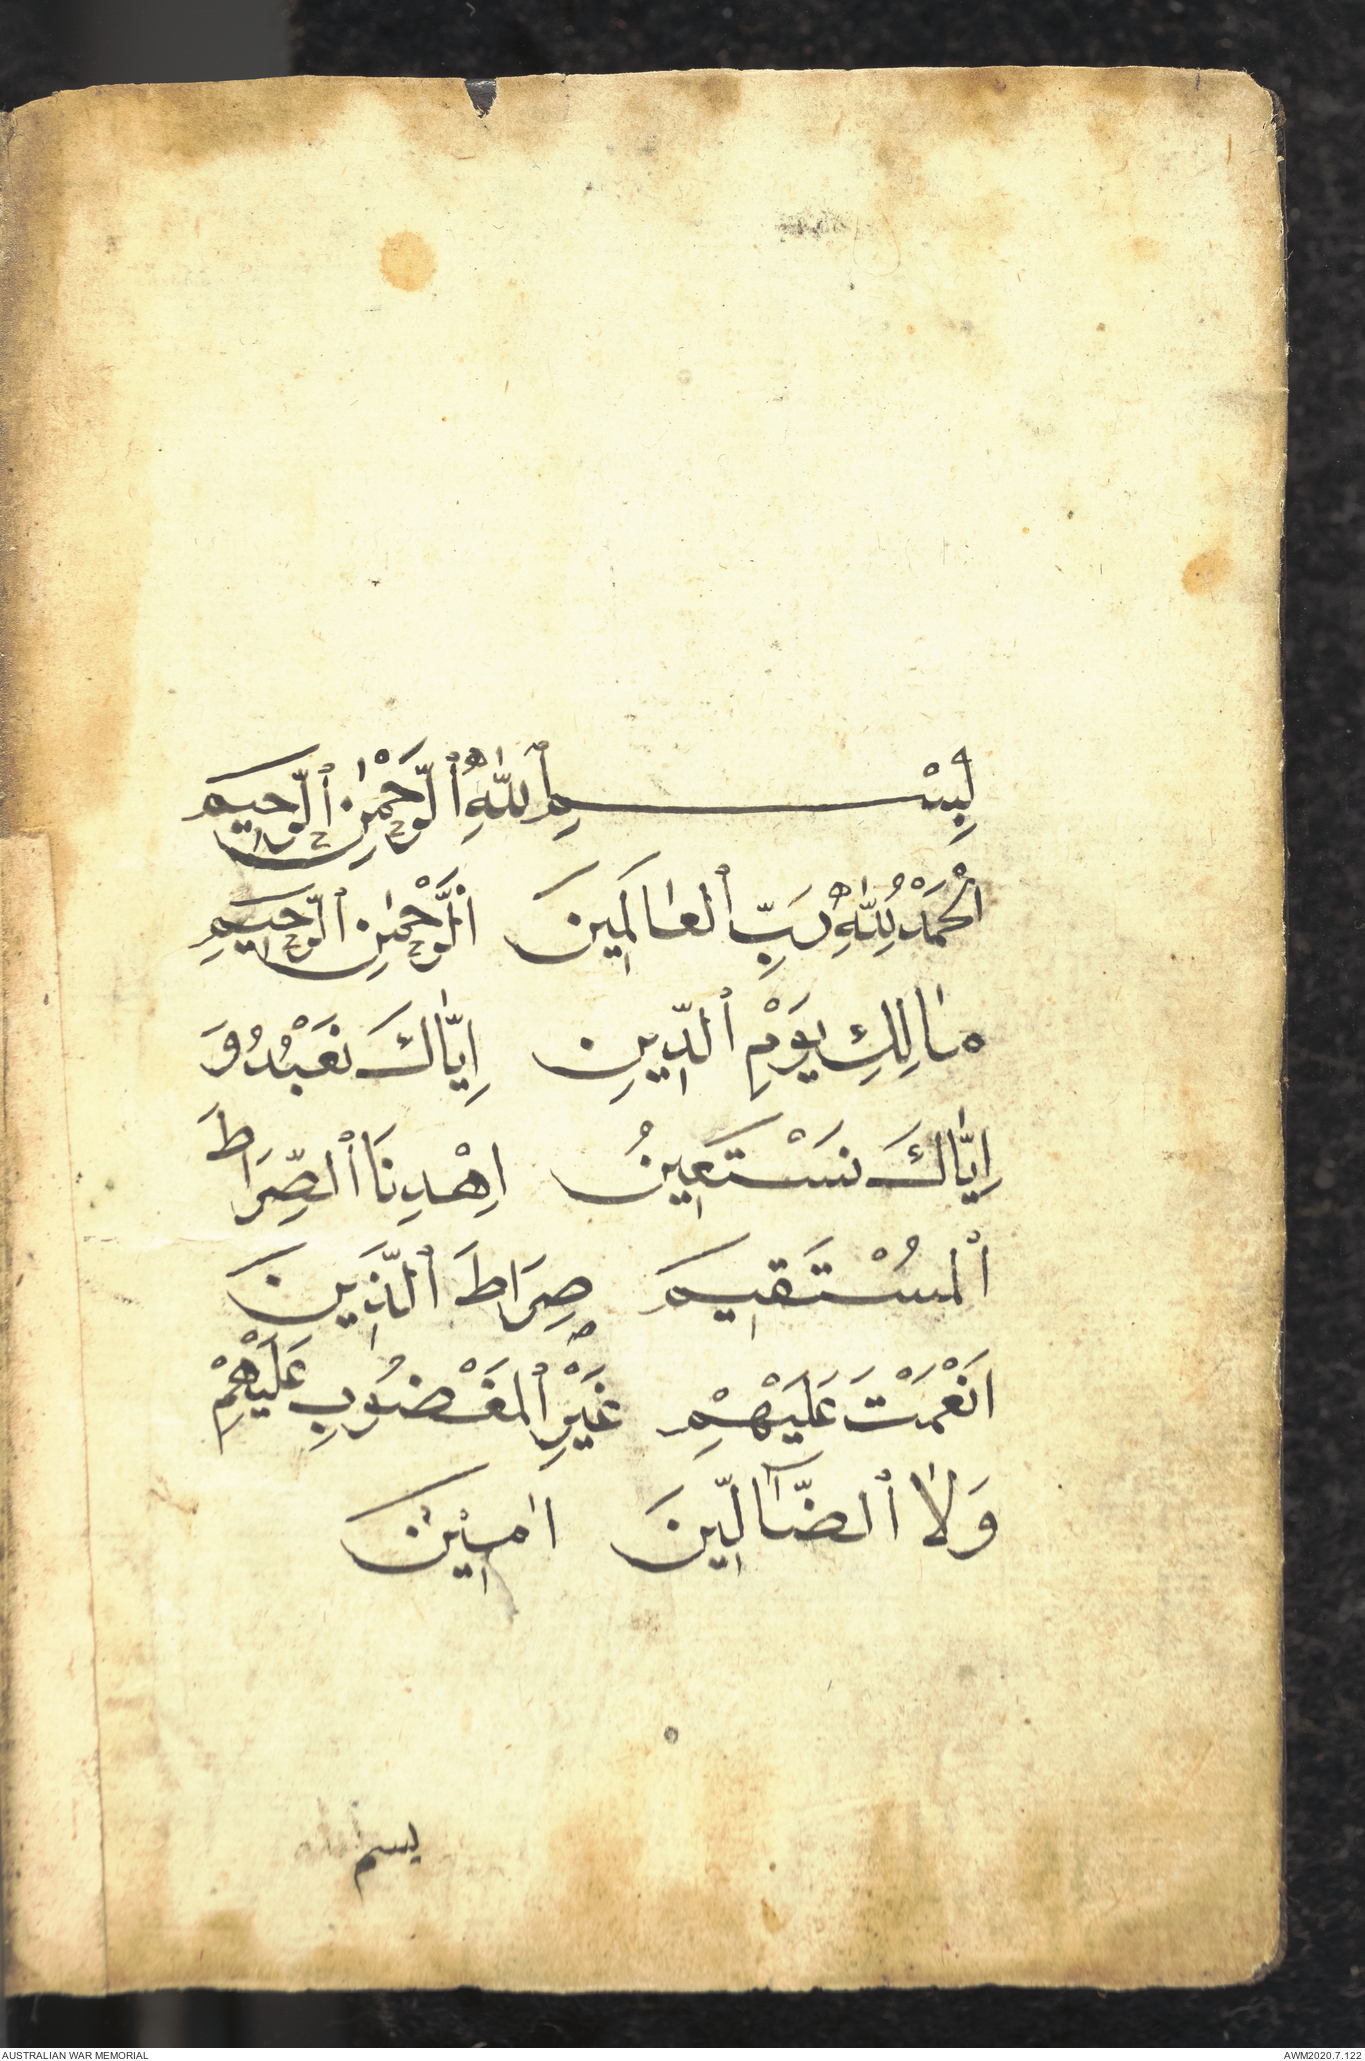 بِسْــــــمِ ٱللّٰهِ ٱلرَّحْمٰنِ ٱلرَّحِيمِ
اَلْحَمْدُ لِلّٰهِ رَبِّ ٱلعَالَمِينَ اَلرَّحْمٰنِ ٱلرَّحِيمِ
مٰالِكِ يَوْمِ ٱلدِّينِ اِيَّاكَ نَعْبُدُ وَ
اِيَّاكَ نَسْتَعِينُ اِهْدِنَا ٱلصِّرَاطَ
ٱلمُسْتَقِيمَ صِرَاطَ ٱلَّذِينَ
اَنْعَمْتَ عَلَيْهِمْ غَيْرِ ٱلمَغْضُوبِ عَلَيْهِمْ
وَلاٰ ٱلضَّآلِّينَ اٰمِيْنَ
بسم
AUSTRALIAN WAR MEMORIAL AWM2020.7.122